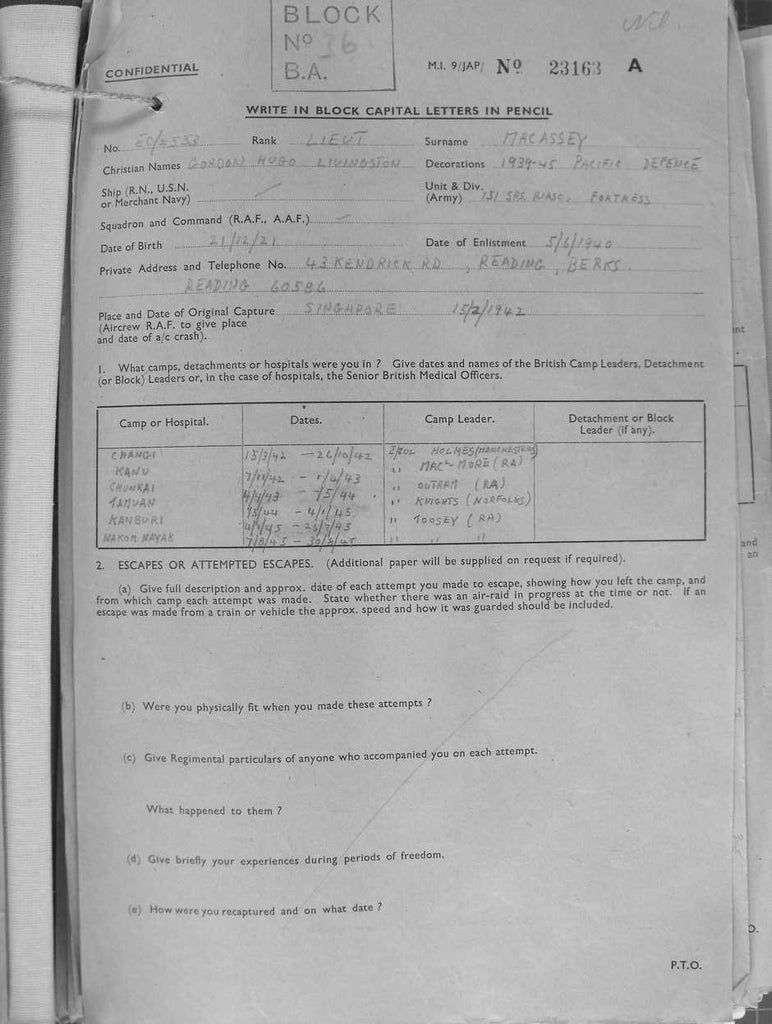 BLOCK
Nº 36
B.A.
Nil.
CONFIDENTIAL
M.I. 9/JAP/ Nº 23163 A
WRITE IN BLOCK CAPITAL LETTERS IN PENCIL
No. Rank LIEUT Surname MACASSEY
Christian Names GORDON HUGO LIVINGSTON Decorations 1939-45 PACIFIC DEFENCE
Ship (R.N., U.S.N.
or Merchant Navy)
Unit & Div.
(Army) FORTRESS
Squadron and Command (R.A.F., A.A.F.)
Date of Birth 21/12/21 Date of Enlistment 5/6/1940
Private Address and Telephone No. 43 KENDRICK RD, READING, BERKS.
READING 60586
Place and Date of Original Capture SINGAPORE 15/2/1942
(Aircrew R.A.F. to give place
and date of a/c crash).
1. What camps, detachments or hospitals were you in ? Give dates and names of the British Camp Leaders, Detachment
(or Block) Leaders or, in the case of hospitals, the Senior British Medical Officers.
Camp or Hospital. Dates. Camp Leader. Detachment or Block
Leader (if any).
CHANGI HOLMES (MANCHESTERS)
KANU (RA)
CHUNKAI " OUTRAM (RA)
TAMUAN " KNIGHTS (NORFOLKS)
KANBURI " TOOSEY (RA)
NAKOM NAYAK " " "
2. ESCAPES OR ATTEMPTED ESCAPES. (Additional paper will be supplied on request if required).
(a) Give full description and approx. date of each attempt you made to escape, showing how you left the camp, and
from which camp each attempt was made. State whether there was an air-raid in progress at the time or not. If an
escape was made from a train or vehicle the approx. speed and how it was guarded should be included.
(b) Were you physically fit when you made these attempts ?
(c) Give Regimental particulars of anyone who accompanied you on each attempt.
What happened to them ?
(d) Give briefly your experiences during periods of freedom.
(e) How were you recaptured and on what date ?
P.T.O.